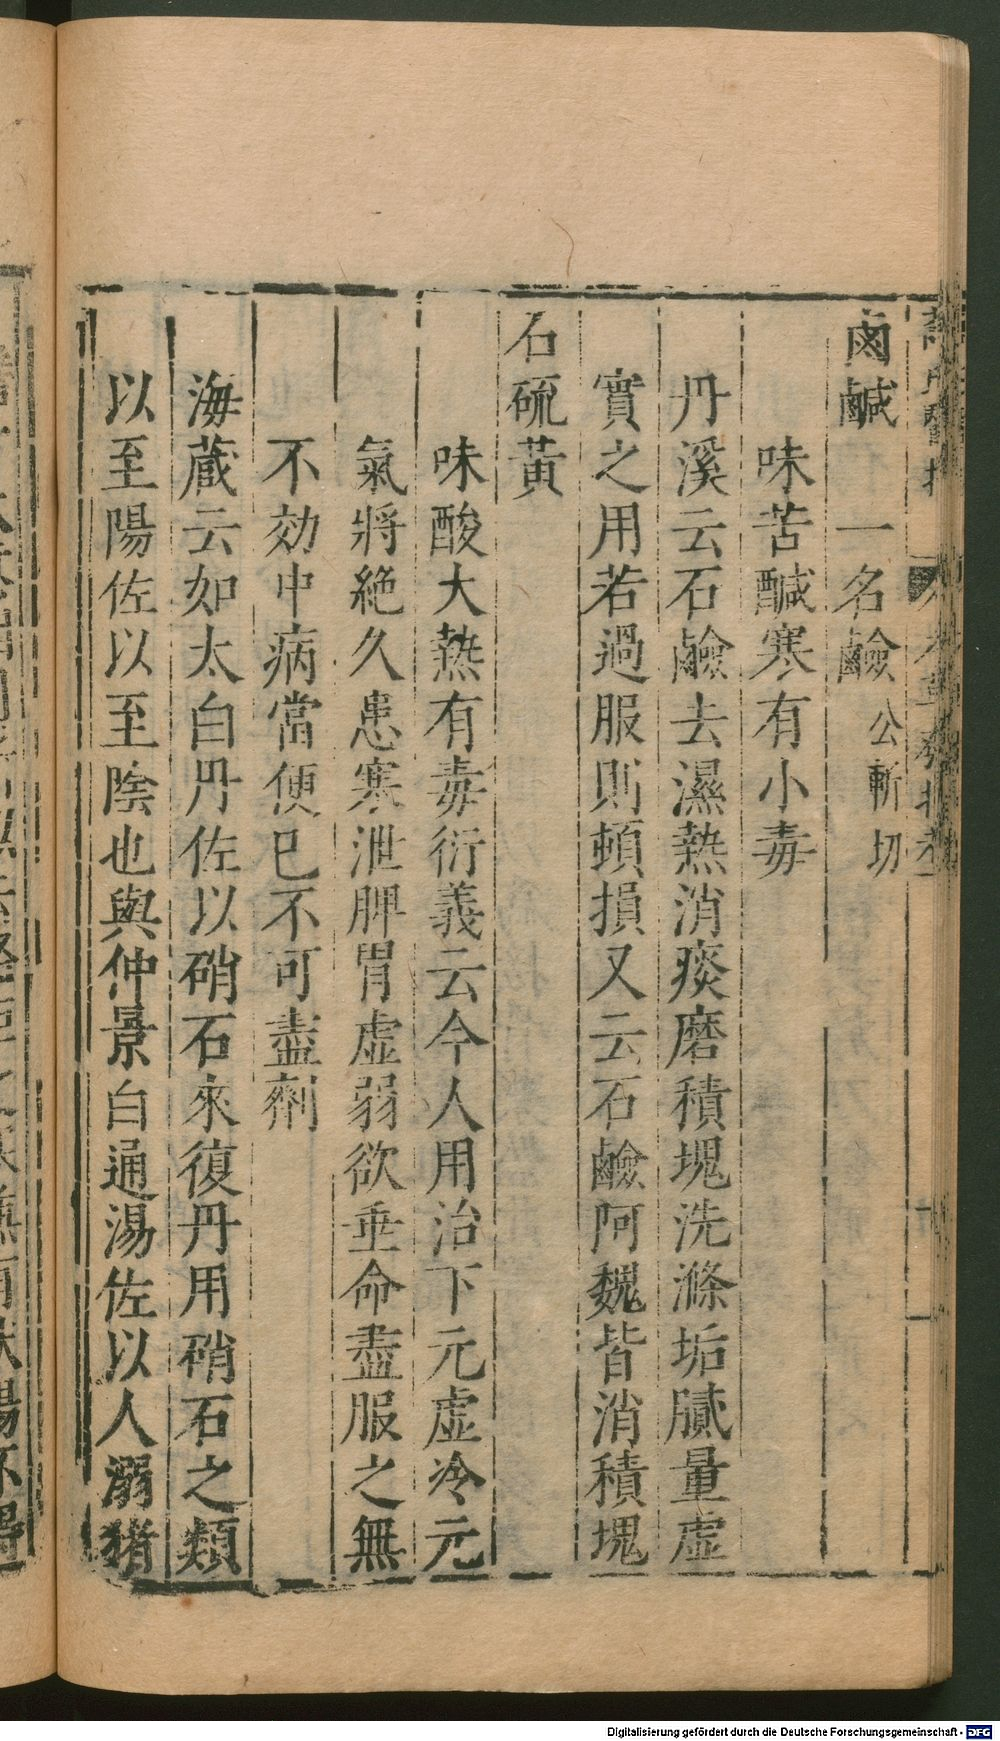 鹵鹹　一名鹼公斬切
味苦鹹寒有小毒
丹溪云石鹼去濕熱消痰磨積塊洗滌垢膩量虛
實之用若過服則頓損又云石鹼阿魏皆消積塊
石硫黃
味酸大熱有毒衍義云今人用治下元虛冷元
氣將絕久患寒泄脾胃虛弱欲垂命盡服之無
不効中病當便已不可盡劑
海蔵云如太白丹佐以硝石來復丹用硝石之類
以至陽佐以至陰也與仲景白通湯佐以人溺猪
Digitalisierung gefördert durch die Deutsche Forschungsgemeinschaft - DFG